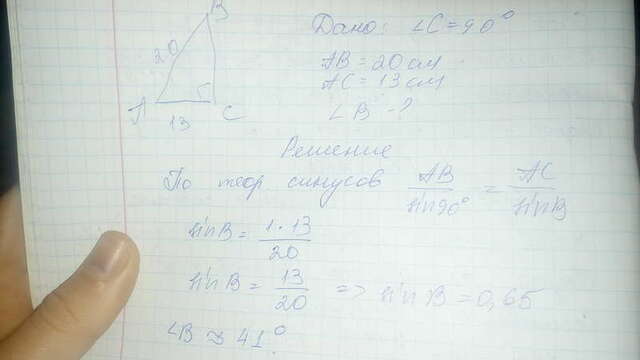 B
20
A
C
13
Дано: ∠C = 90°
AB = 20 см
AC = 13 см
∠B - ?
Решение
По теор синусов AB/sin90° = AC/sinB
sinB = 1·13/20
sinB = 13/20 => sinB = 0,65
∠B ≈ 41°